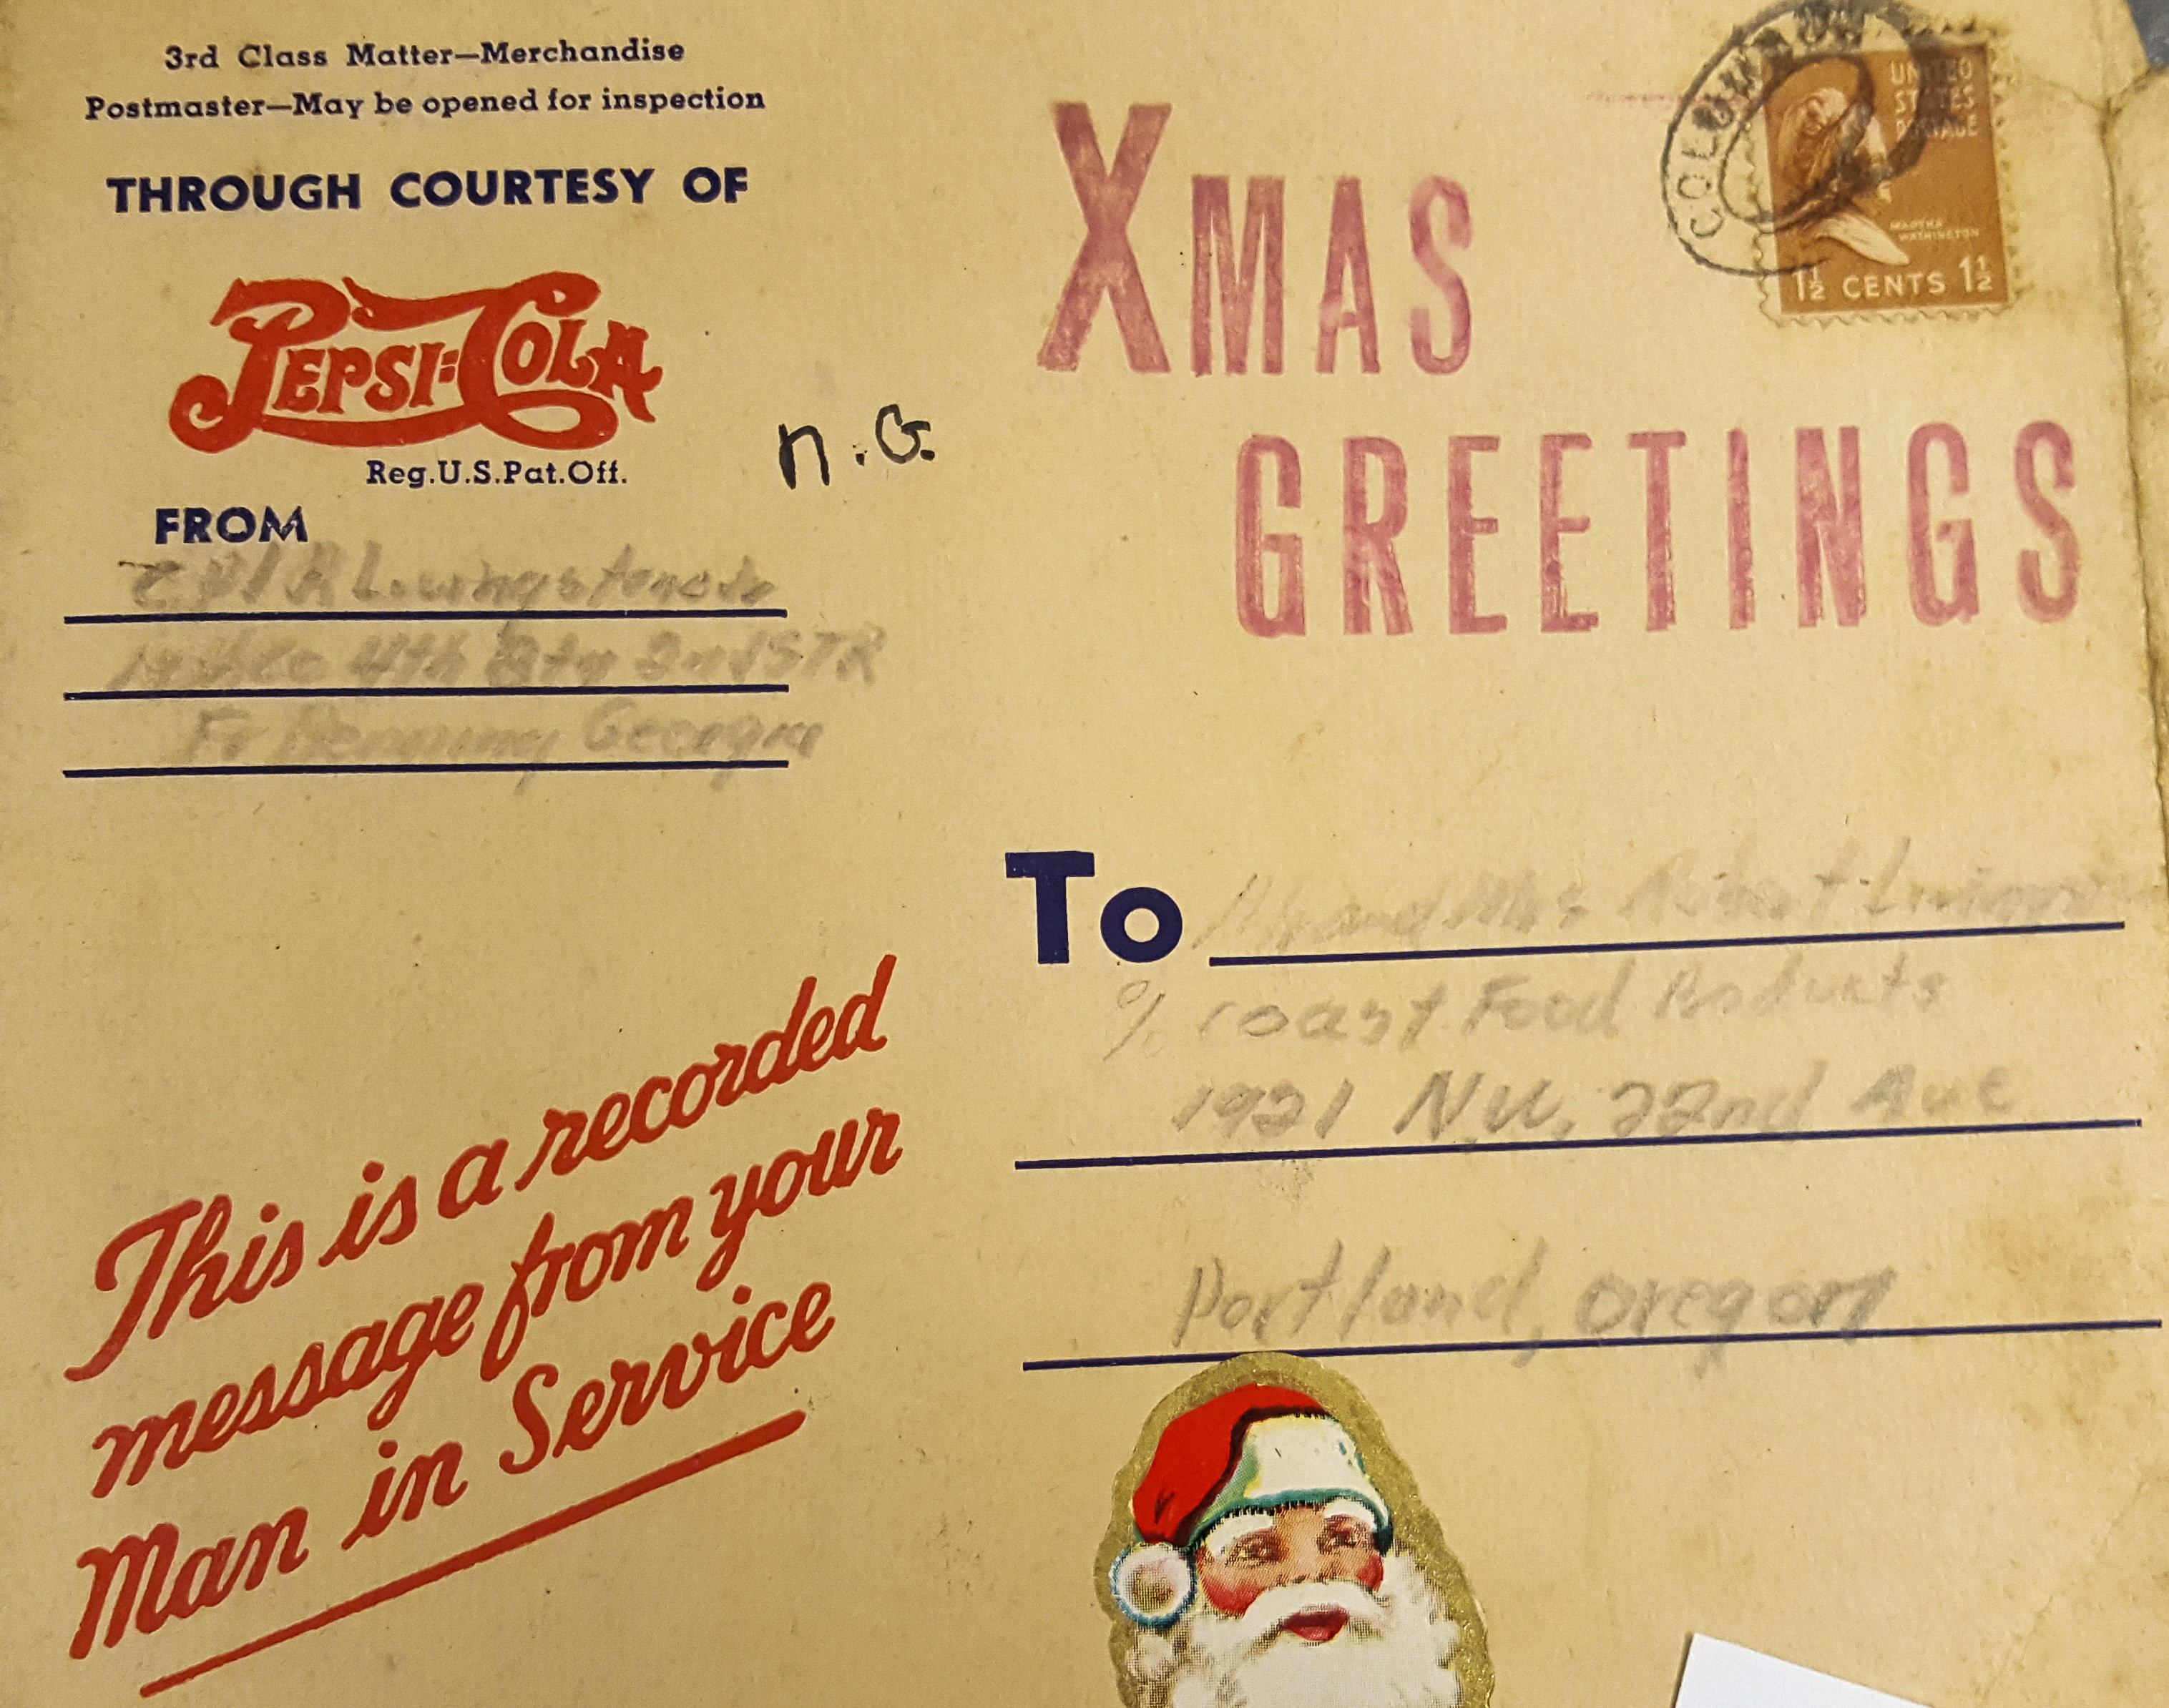 3rd Class Matter—Merchandise
Postmaster—May be opened for inspection
THROUGH COURTESY OF
PEPSI-COLA
Reg.U.S.Pat.Off.
n.G.
FROM
4th 2nd STR
Ft Benning Georgia
XMAS
GREETINGS
UNITED
STATES
POSTAGE
MARTHA
WASHINGTON
1½ CENTS 1½
To Mr and Mrs Robert
% Coast Food Products
1921 N.W. 22nd Ave
Portland, Oregon
This is a recorded
message from your
Man in Service